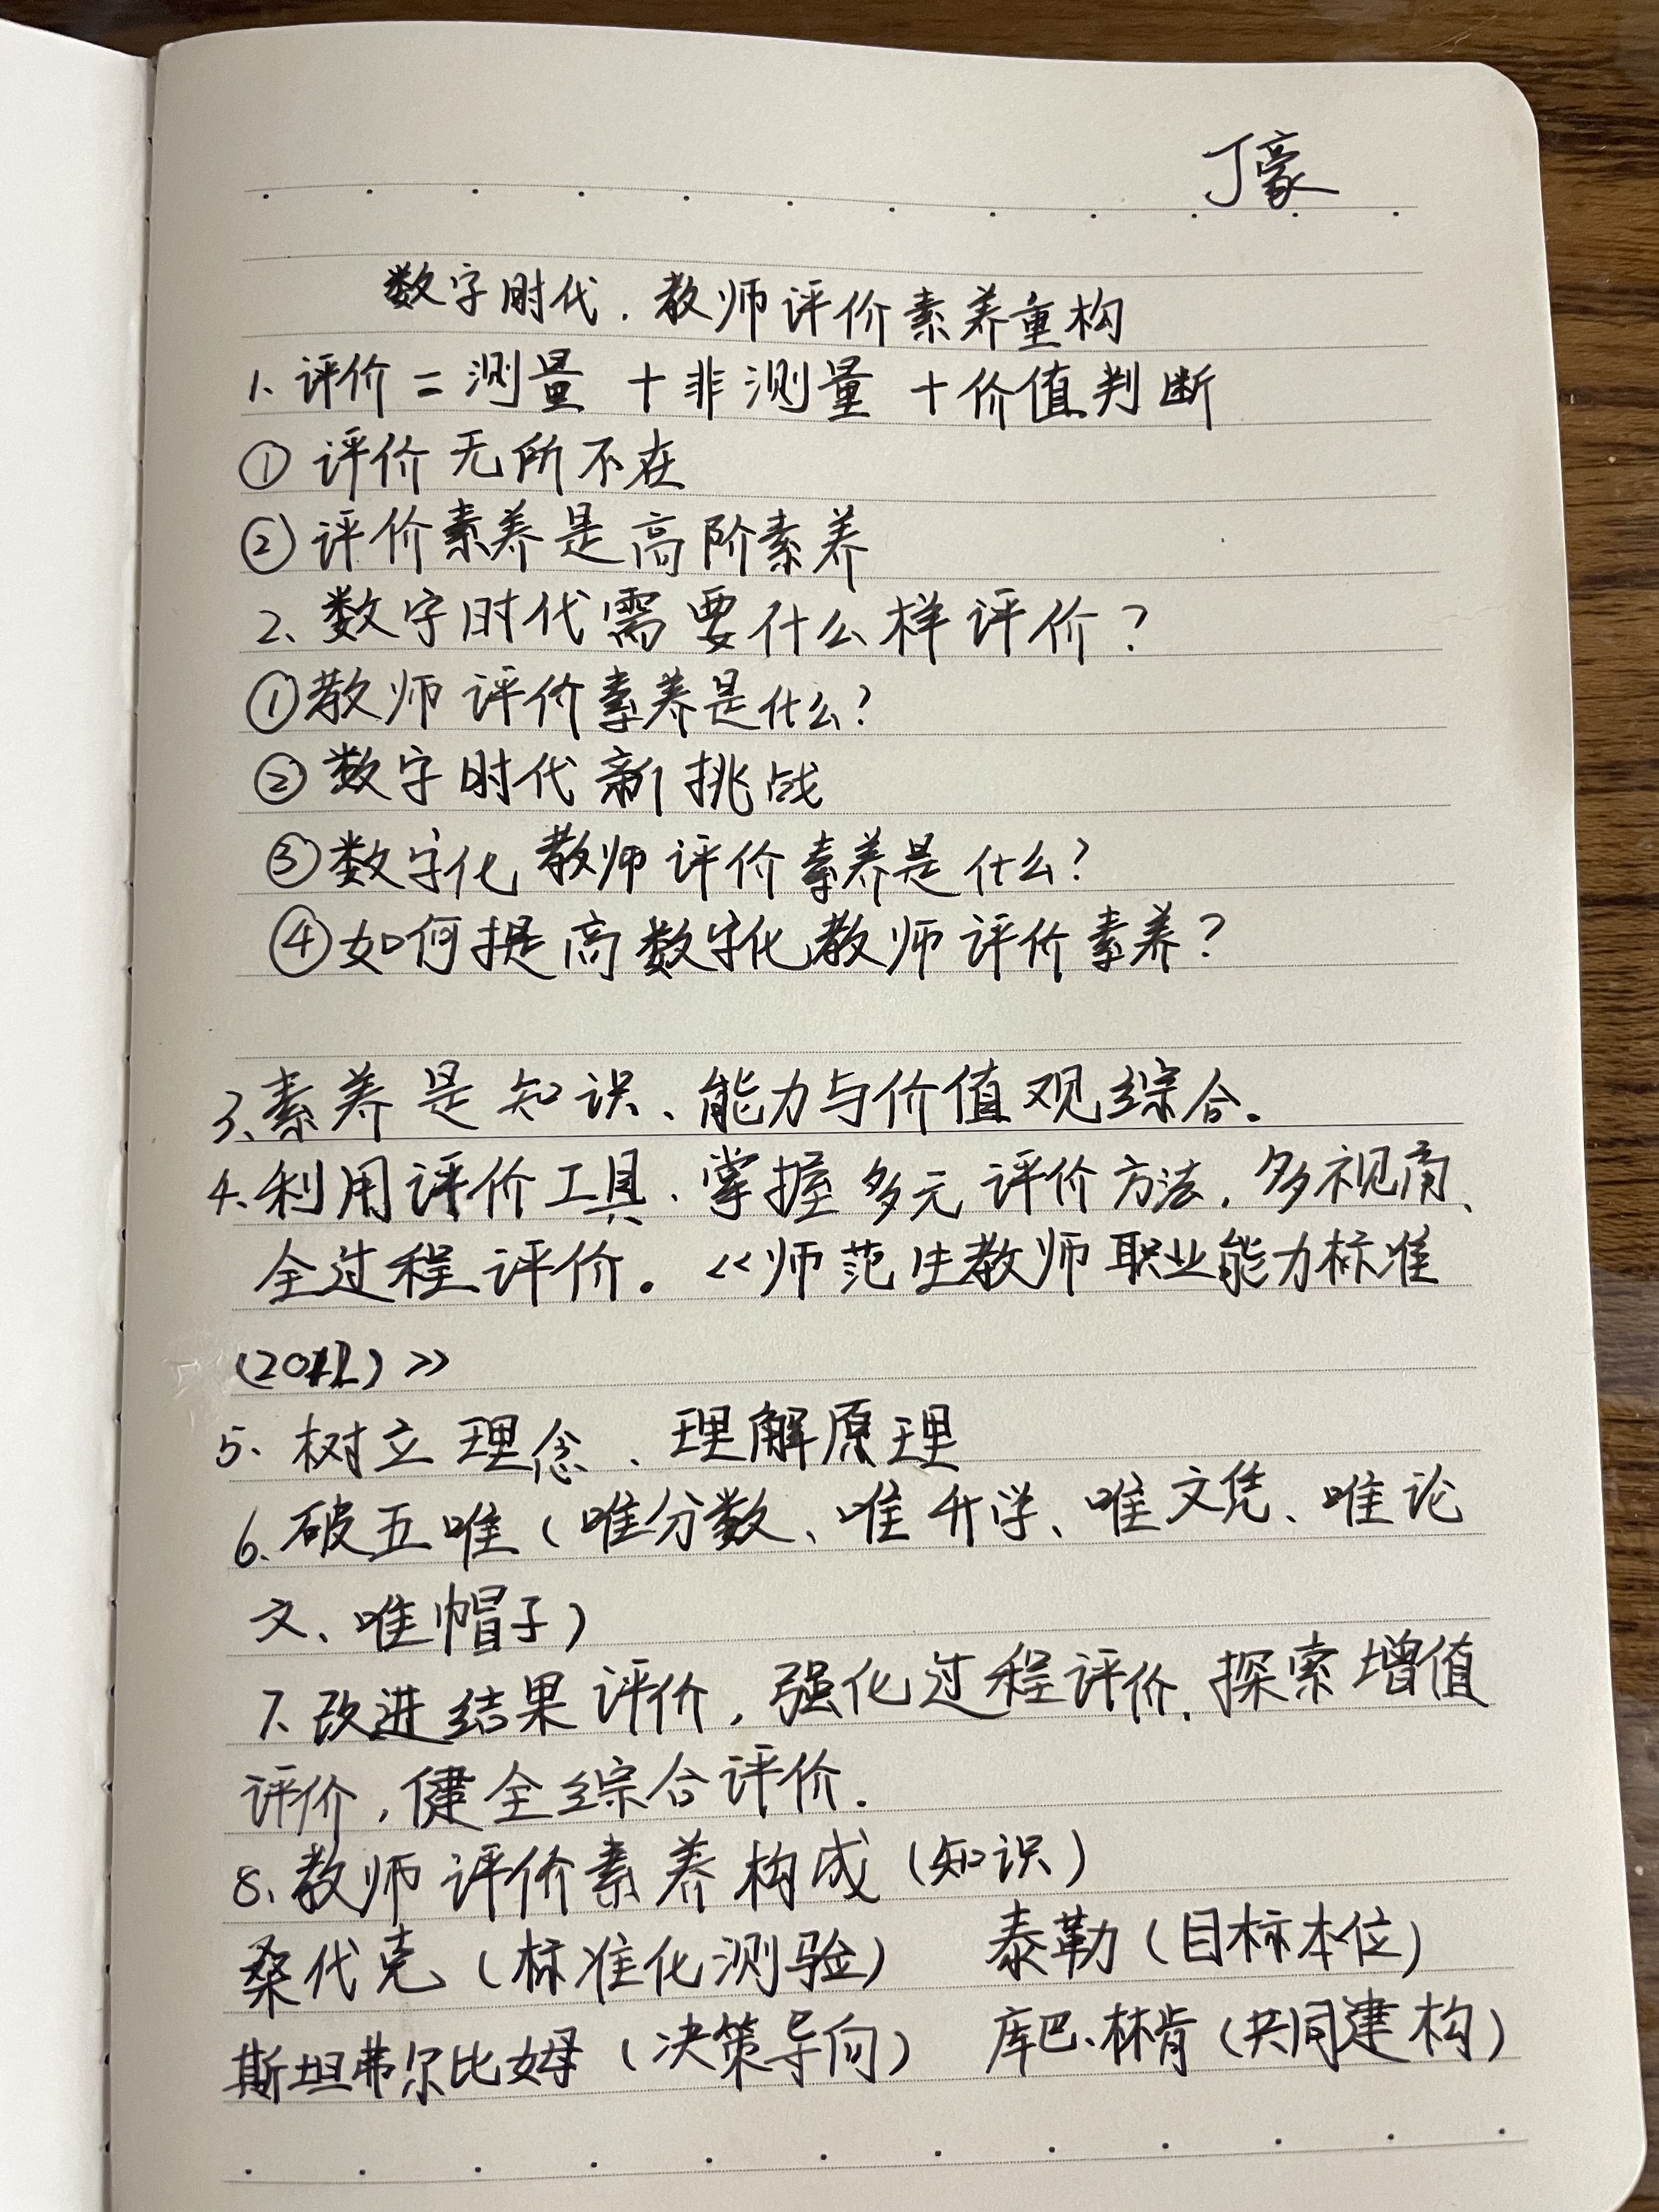 丁豪
数字时代.教师评价素养重构
1、评价=测量 +非测量 +价值判断
① 评价无所不在
② 评价素养是高阶素养
2、数字时代需要什么样评价?
①教师评价素养是什么?
②数字时代新挑战
③数字化教师评价素养是什么?
④如何提高数字化教师评价素养?
3、素养是知识、能力与价值观综合。
4、利用评价工具、掌握多元评价方法,多视角、
全过程评价。《师范生教师职业能力标准
(2022)》
5、树立理念、理解原理
6、破五唯(唯分数、唯升学、唯文凭、唯论
文、唯帽子)
7、改进结果评价,强化过程评价、探索增值
评价,健全综合评价.
8、教师评价素养构成(知识)
桑代克(标准化测验) 泰勒(目标本位)
斯坦弗尔比姆(决策导向) 库巴、林肯(共同建构)